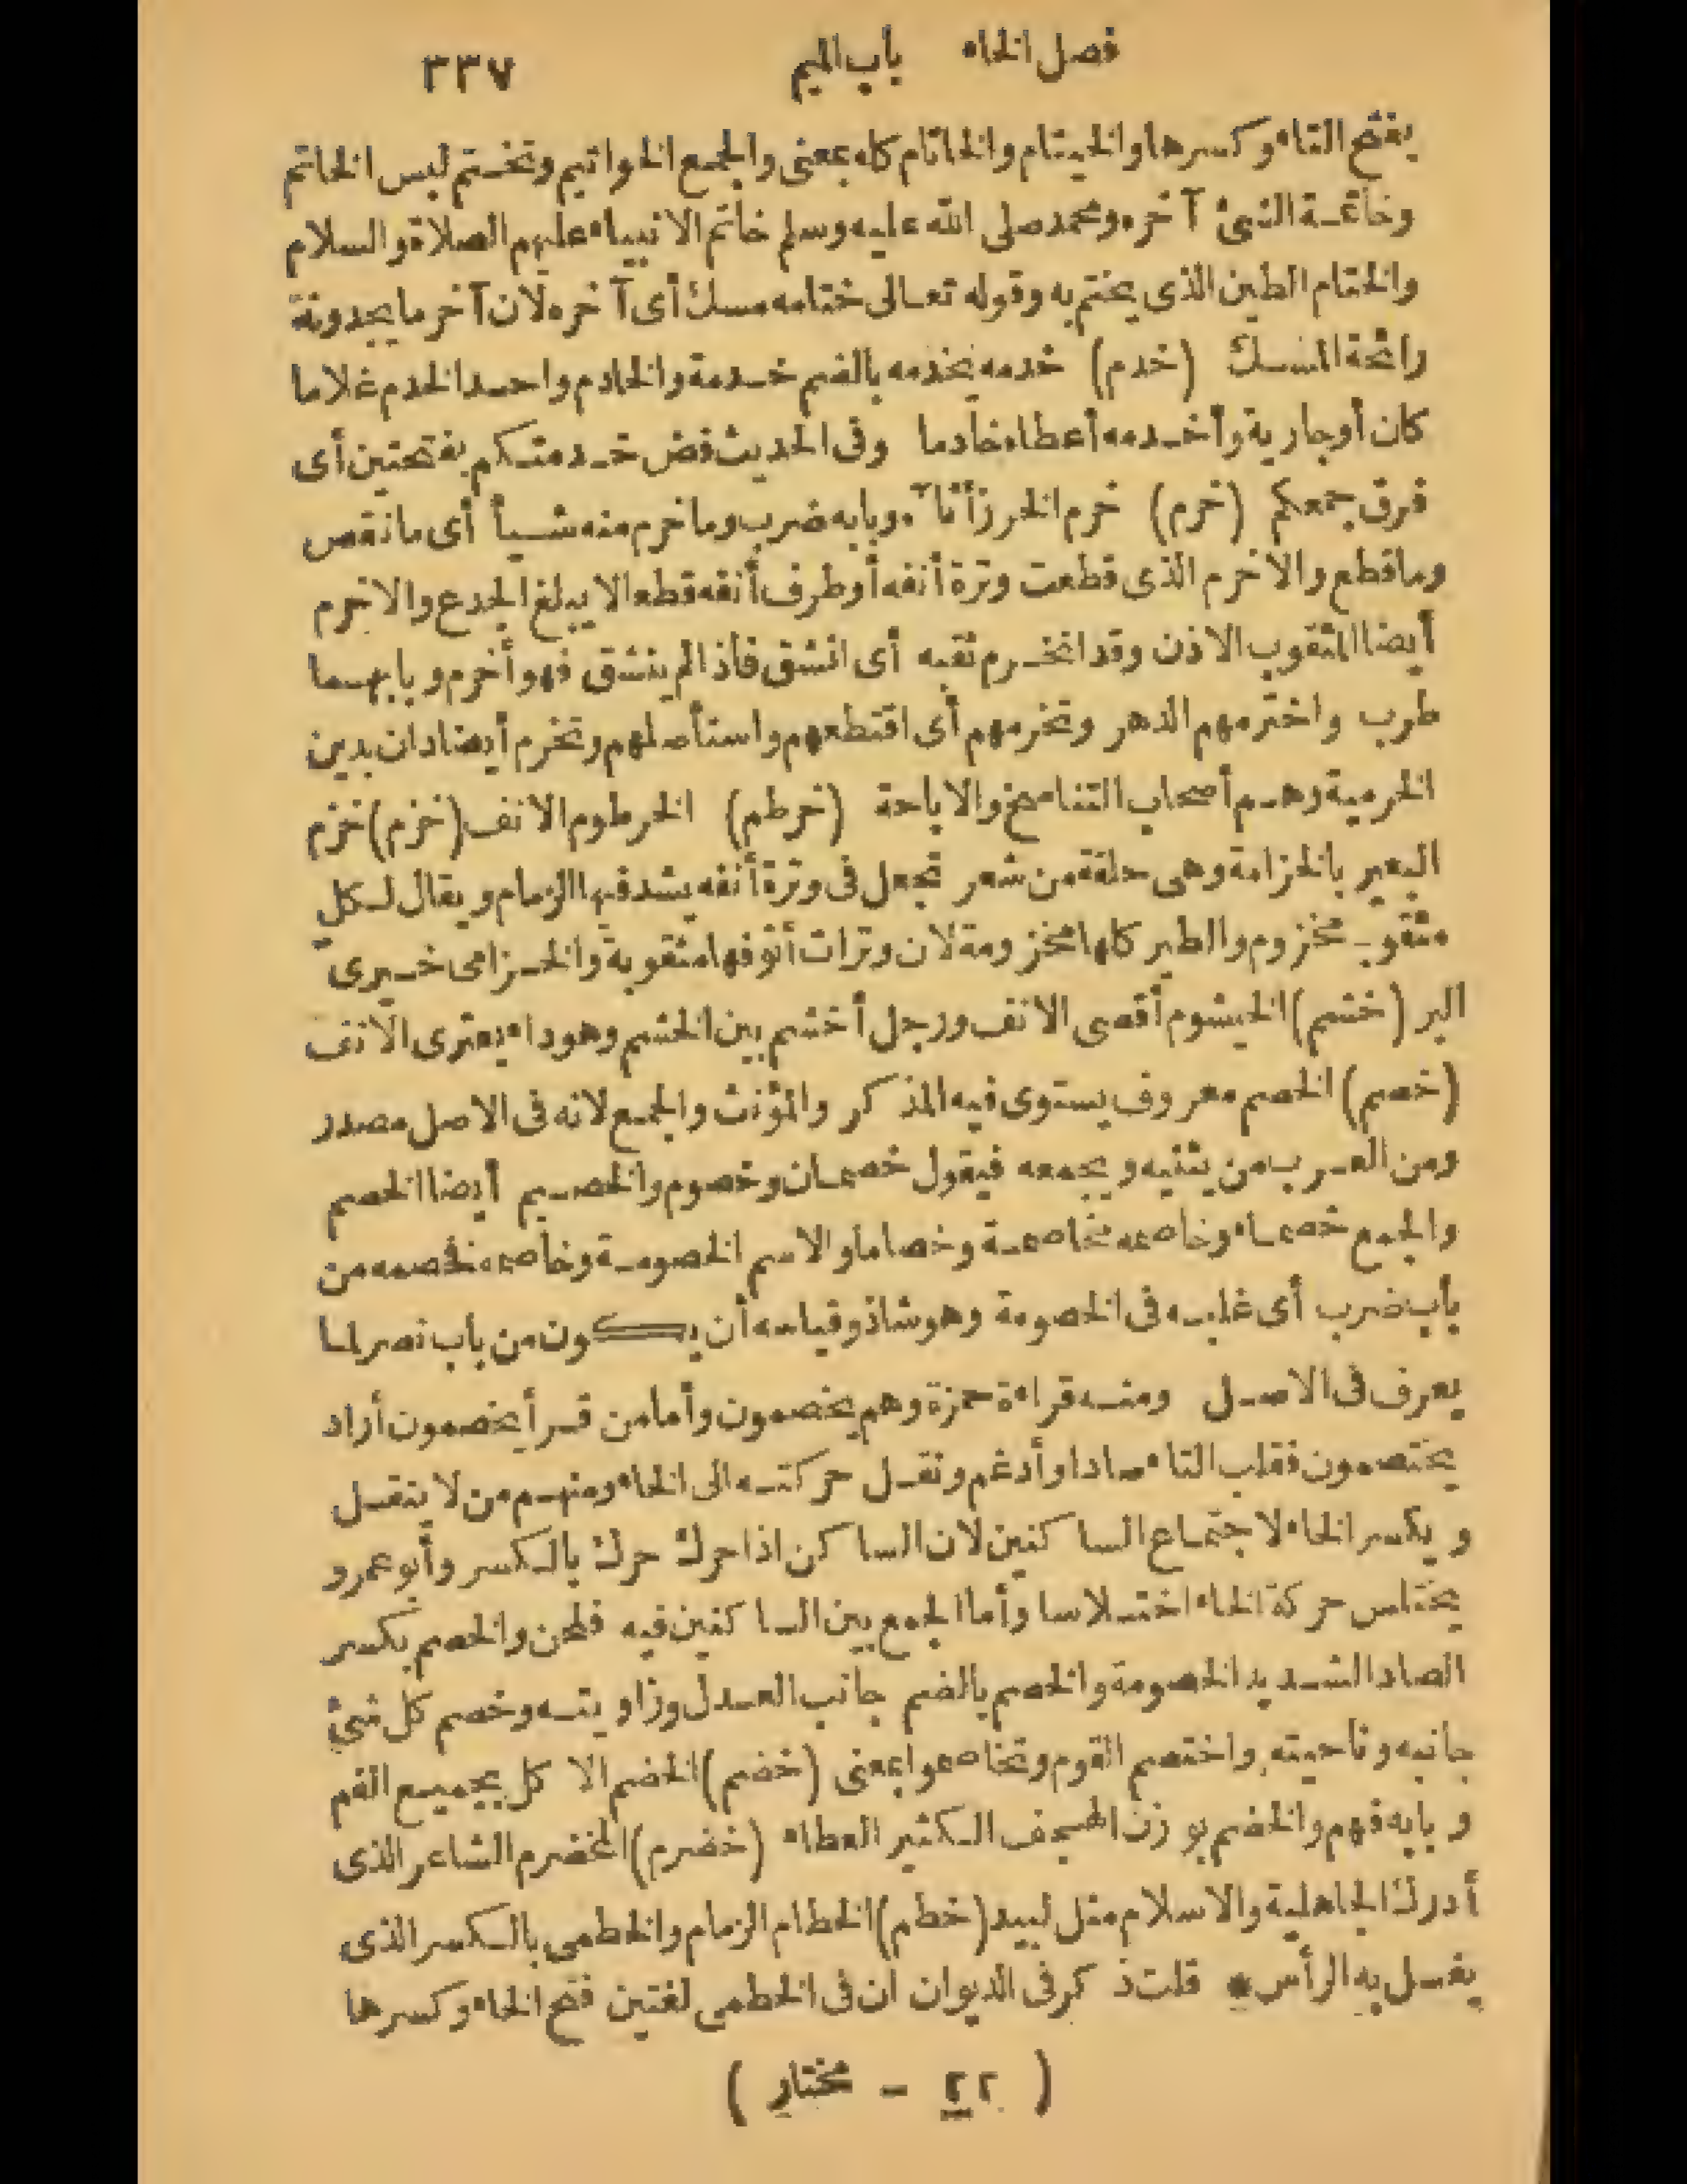 فصل الخاء باب الميم ٣٣٧
بفتح التاء وكسرها والخيتام والخاتام كله بمعنى والجمع الخواتيم وتختم لبس الخاتم
وخاتمة الشئ آخره ومحمد صلى الله عليه وسلم خاتم الانبياء عليهم الصلاة والسلام
والختام الطين الذى يختم به وقوله تعالى ختامه مسك أى آخره لان آخر ما يجدونة
رائحة المسك (خدم) خدمه يخدمه بالضم خدمة والخادم واحد الخدم غلاما
كان أو جارية وأخدمه أعطاه خادما وفى الحديث فض خدمتكم بفتحتين أى
فرق جمعكم (خرم) خرم الخرز أثآه وبابه ضرب وما خرم منه شيأ أى ما نقص
وما قطع والاخرم الذى قطعت وترة أنفه أو طرف أنفه قطعا لا يبلغ الجدع والاخرم
أيضا المثقوب الاذن وقد انخرم ثقبه أى انشق فاذا لم ينشق فهو أخرم وبابهما
طرب واخترمهم الدهر وتخرمهم أى اقتطعهم واستأصلهم وتخرم أيضا دان بدين
الخرمية وهم أصحاب التناسخ والاباحة (خرطم) الخرطوم الانف (خزم) خزم
البعير بالخزامة وهى حلقة من شعر تجعل فى وترة أنفه يشد فيها الزمام ويقال لكل
مثقوب مخزوم والطير كلها مخزومة لان وترات أنوفها مثقوبة والخزامى خيرى
البر (خشم) الخيشوم أقصى الانف ورجل أخشم بين الخشم وهو داء يعترى الانف
(خصم) الخصم معروف يستوى فيه المذكر والمؤنث والجمع لانه فى الاصل مصدر
ومن العرب من يثنيه ويجمعه فيقول خصمان وخصوم والخصيم أيضا الخصم
والجمع خصماء وخاصمه مخاصمة وخصاما والاسم الخصومة وخاصمه فخصمه من
باب ضرب أى غلبه فى الخصومة وهو شاذ وقياسه أن يكون من باب نصر لما
يعرف فى الاصل ومنه قراءة حمزة وهم يخصمون وأما من قرأ يخصمون أراد
يختصمون فقلب التاء صادا وأدغم ونقل حركته الى الخاء ومنهم من لا ينقل
ويكسر الخاء لاجتماع الساكنين لان الساكن اذا حرك حرك بالكسر وأبو عمرو
يختلس حركة الخاء اختلاسا وأما الجمع بين الساكنين فيه فلحن والخصم بكسر
الصاد الشديد الخصومة والخصم بالضم جانب العدل وزاويته وخصم كل شئ
جانبه وناحيته واختصم القوم وتخاصموا بمعنى (خضم) الخضم الاكل بجميع الفم
وبابه فهم والخضم بوزن الهجف الكثير العطاء (خضرم) المخضرم الشاعر الذى
أدرك الجاهلية والاسلام مثل لبيد (خطم) الخطام الزمام والخطمى بالكسر الذى
يغسل به الرأس * قلت ذكر فى الديوان ان فى الخطمى لغتين فتح الخاء وكسرها
( ٢٢ - مختار )